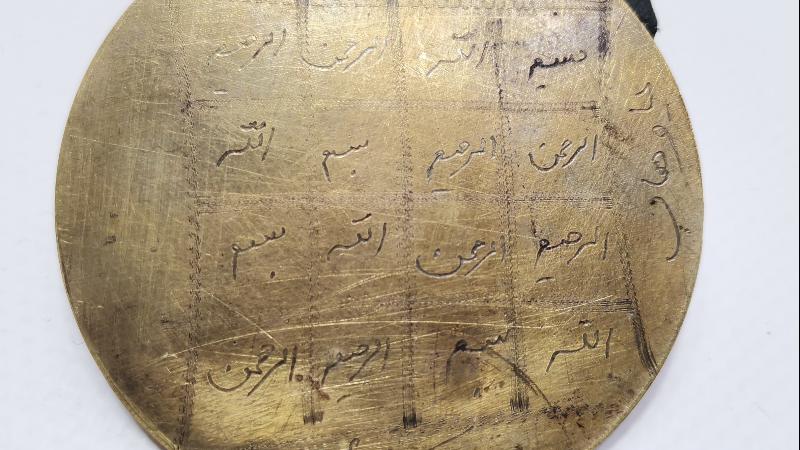 بسم الله الرحمن الرحيم
الرحمن الرحيم بسم الله
الرحيم الرحمن الله بسم
الله بسم الرحيم الرحمن